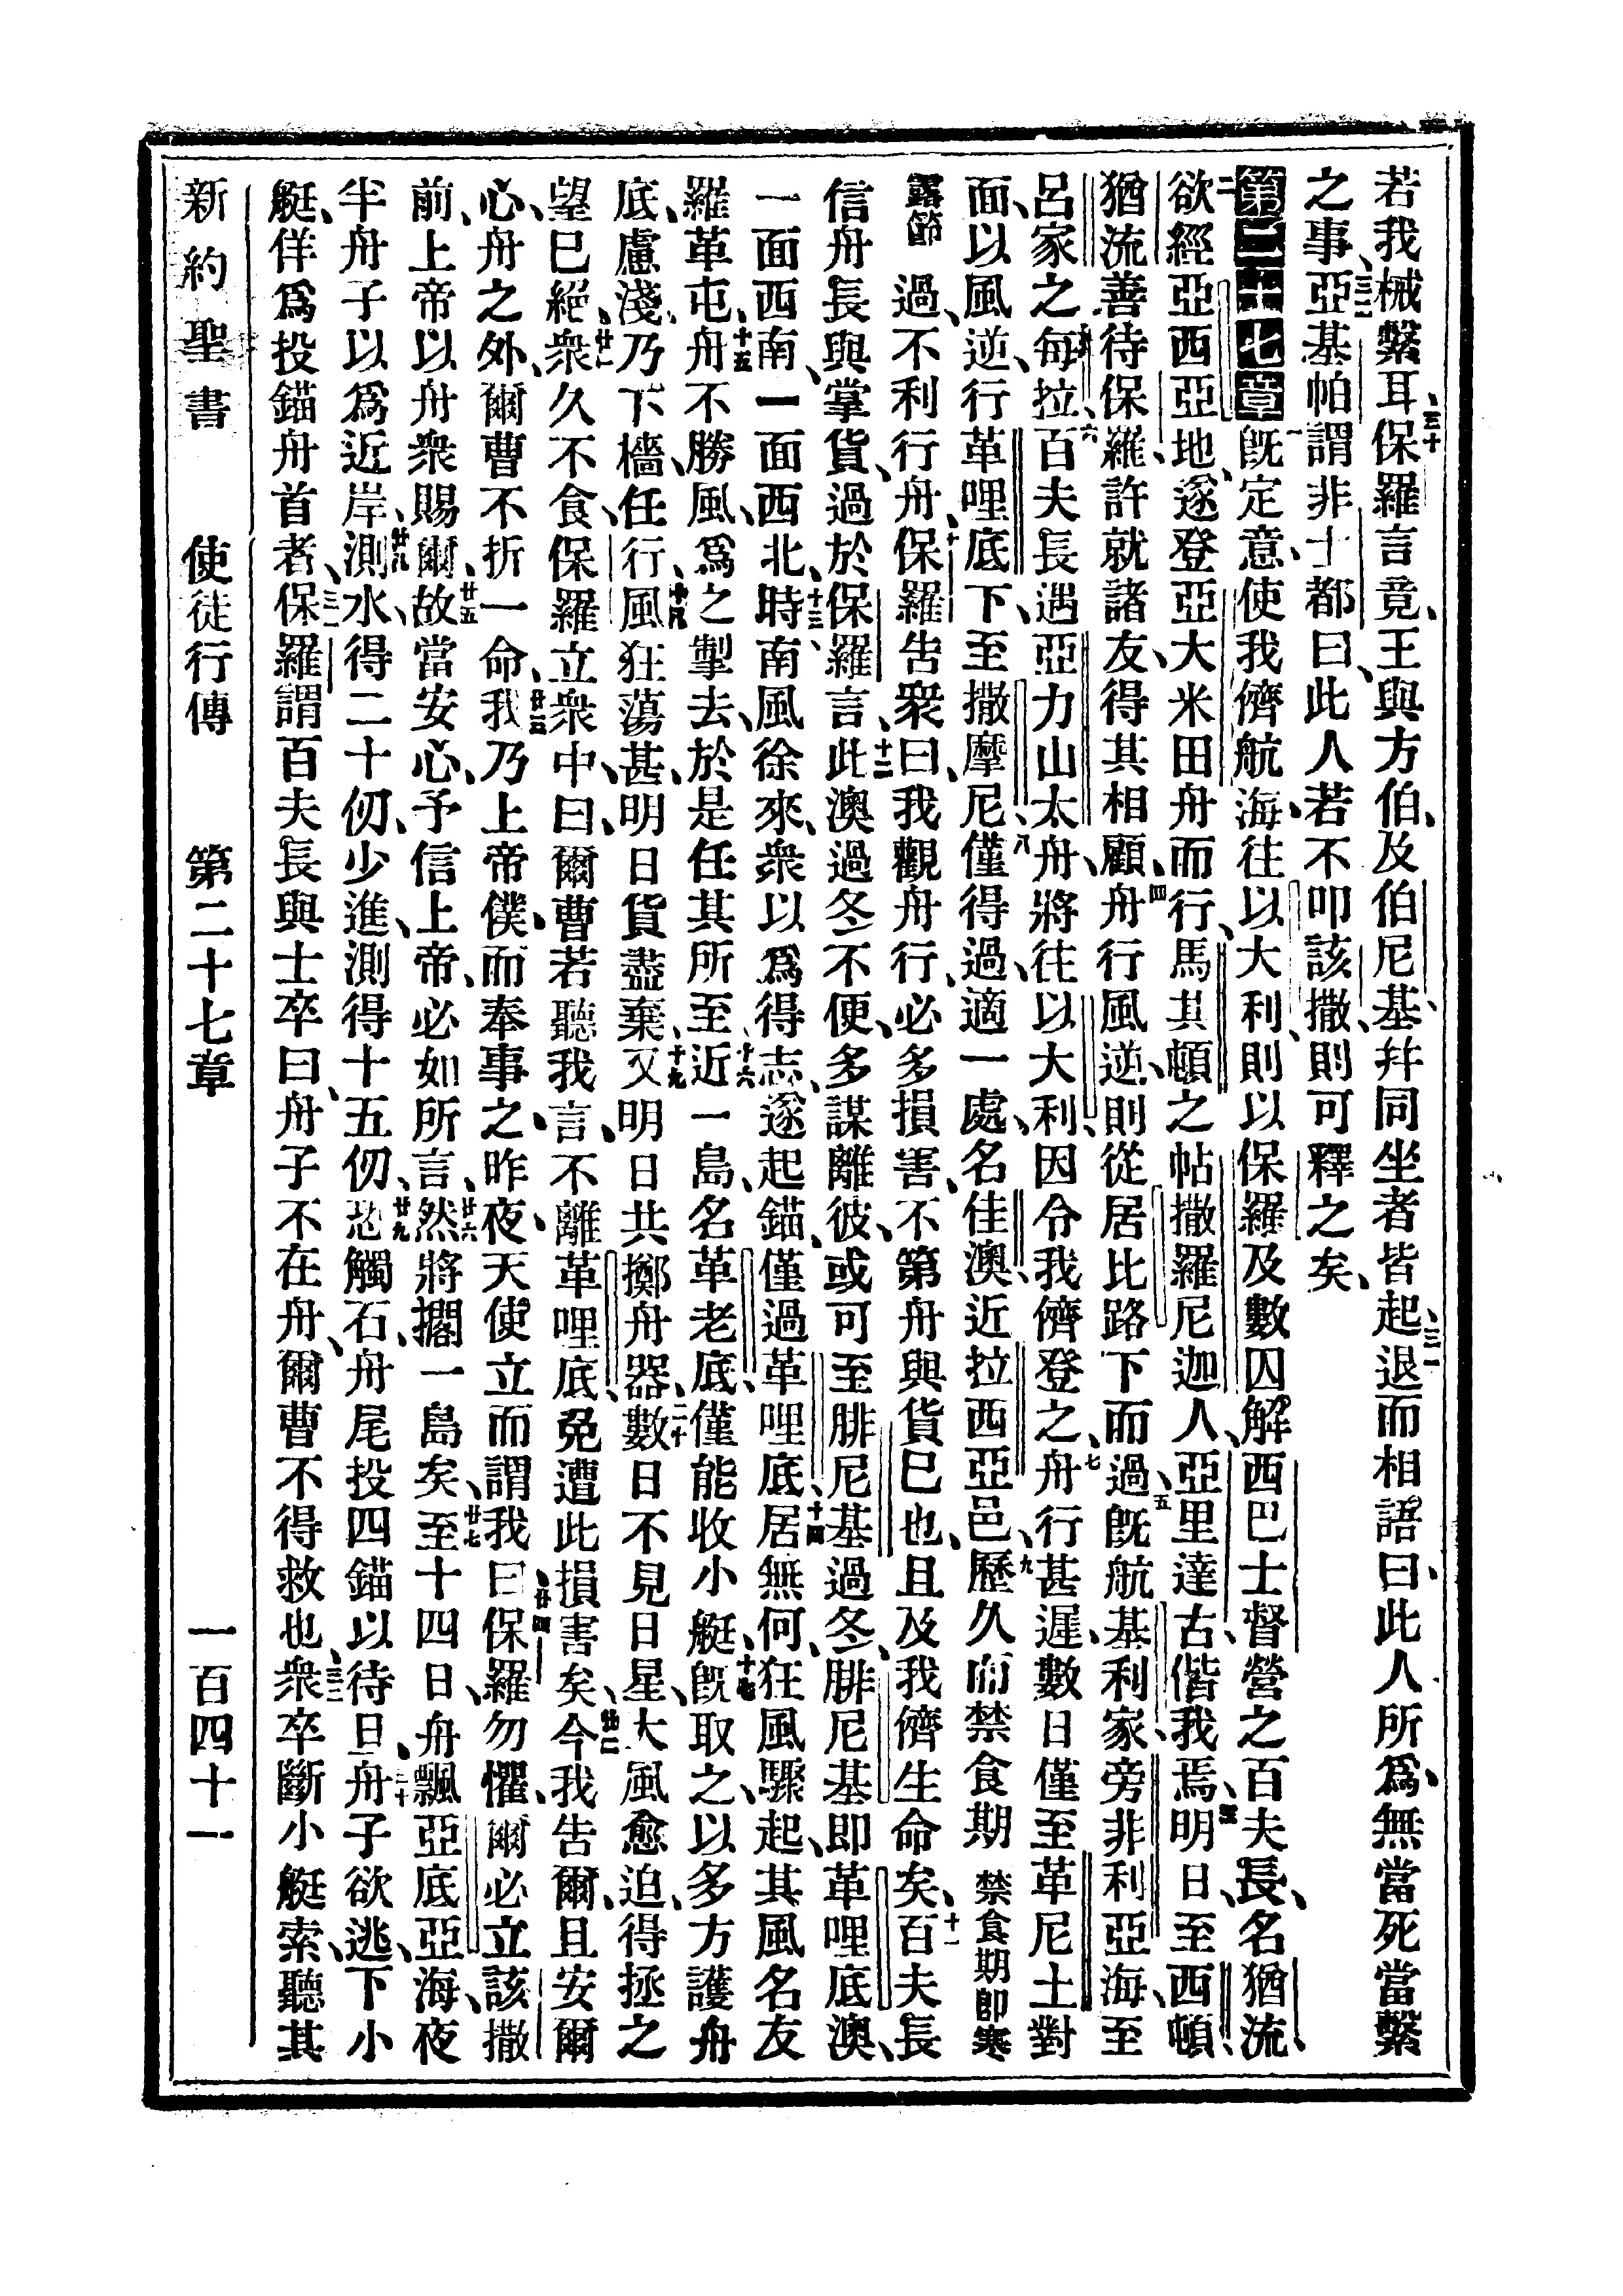 若我械繫耳、三十保羅言竟、王與方伯、及伯尼基、幷同坐者皆起、三一退而相語曰、此人所爲、無當死當繫
之事、三二亞基帕謂非士都曰、此人若不叩該撒、則可釋之矣、
第二十七章一旣定意、使我儕航海、往以大利、則以保羅及數囚、解西巴士督營之百夫長、名猶流、
二欲經亞西亞地、遂登亞大米田舟而行、馬其頓之帖撒羅尼迦人、亞里達古、偕我焉、三明日、至西頓、
猶流善待保羅、許就諸友、得其相顧、四舟行風逆、則從居比路下而過、五旣航基利家、旁非利亞海、至
呂家之每拉、六百夫長遇亞力山太舟、將往以大利、因令我儕登之、七舟行甚遲、數日僅至革尼土對
面、以風逆、行革哩底下、至撒摩尼、八僅得過、適一處、名佳澳、近拉西亞邑、九歷久而禁食期禁食期卽寒
露節過、不利行舟、十保羅吿衆曰、我觀舟行、必多損害、不第舟與貨已也、且及我儕生命矣、十一百夫長
信舟長與掌貨、過於保羅言、十二此澳過冬不便、多謀離彼、或可至腓尼基過冬、腓尼基卽革哩底澳、
一面西南、一面西北、十三時南風徐來、衆以爲得志、遂起錨、僅過革哩底、十四居無何、狂風驟起、其風名友
羅革屯、十五舟不勝風、爲之掣去、於是任其所至、十六近一島、名革老底、僅能收小艇、十七旣取之、以多方護舟
底、慮淺、乃下檣、任行、十八風狂蕩甚、明日貨盡棄、十九又明日共擲舟器、二十數日不見日星、大風愈迫、得拯之
望已絕、廿一衆久不食、保羅立衆中、曰、爾曹若聽我言、不離革哩底、免遭此損害矣、廿二今我吿爾、且安爾
心、舟之外、爾曹不折一命、廿三我乃上帝僕、而奉事之、昨夜、天使立而謂我曰、廿四保羅勿懼、爾必立該撒
前、上帝以舟衆賜爾、廿五故當安心、予信上帝、必如所言、廿六然將擱一島矣、廿七至十四日、舟飄亞底亞海、夜
半舟子以爲近岸、廿八測水、得二十仞、少進、測得十五仞、廿九恐觸石、舟尾投四錨以待旦、三十舟子欲逃、下小
艇、佯爲投錨舟首者、三一保羅謂百夫長與士卒曰、舟子不在舟、爾曹不得救也、三二衆卒斷小艇索、聽其
新約聖書 使徒行傳 第二十七章 一百四十一